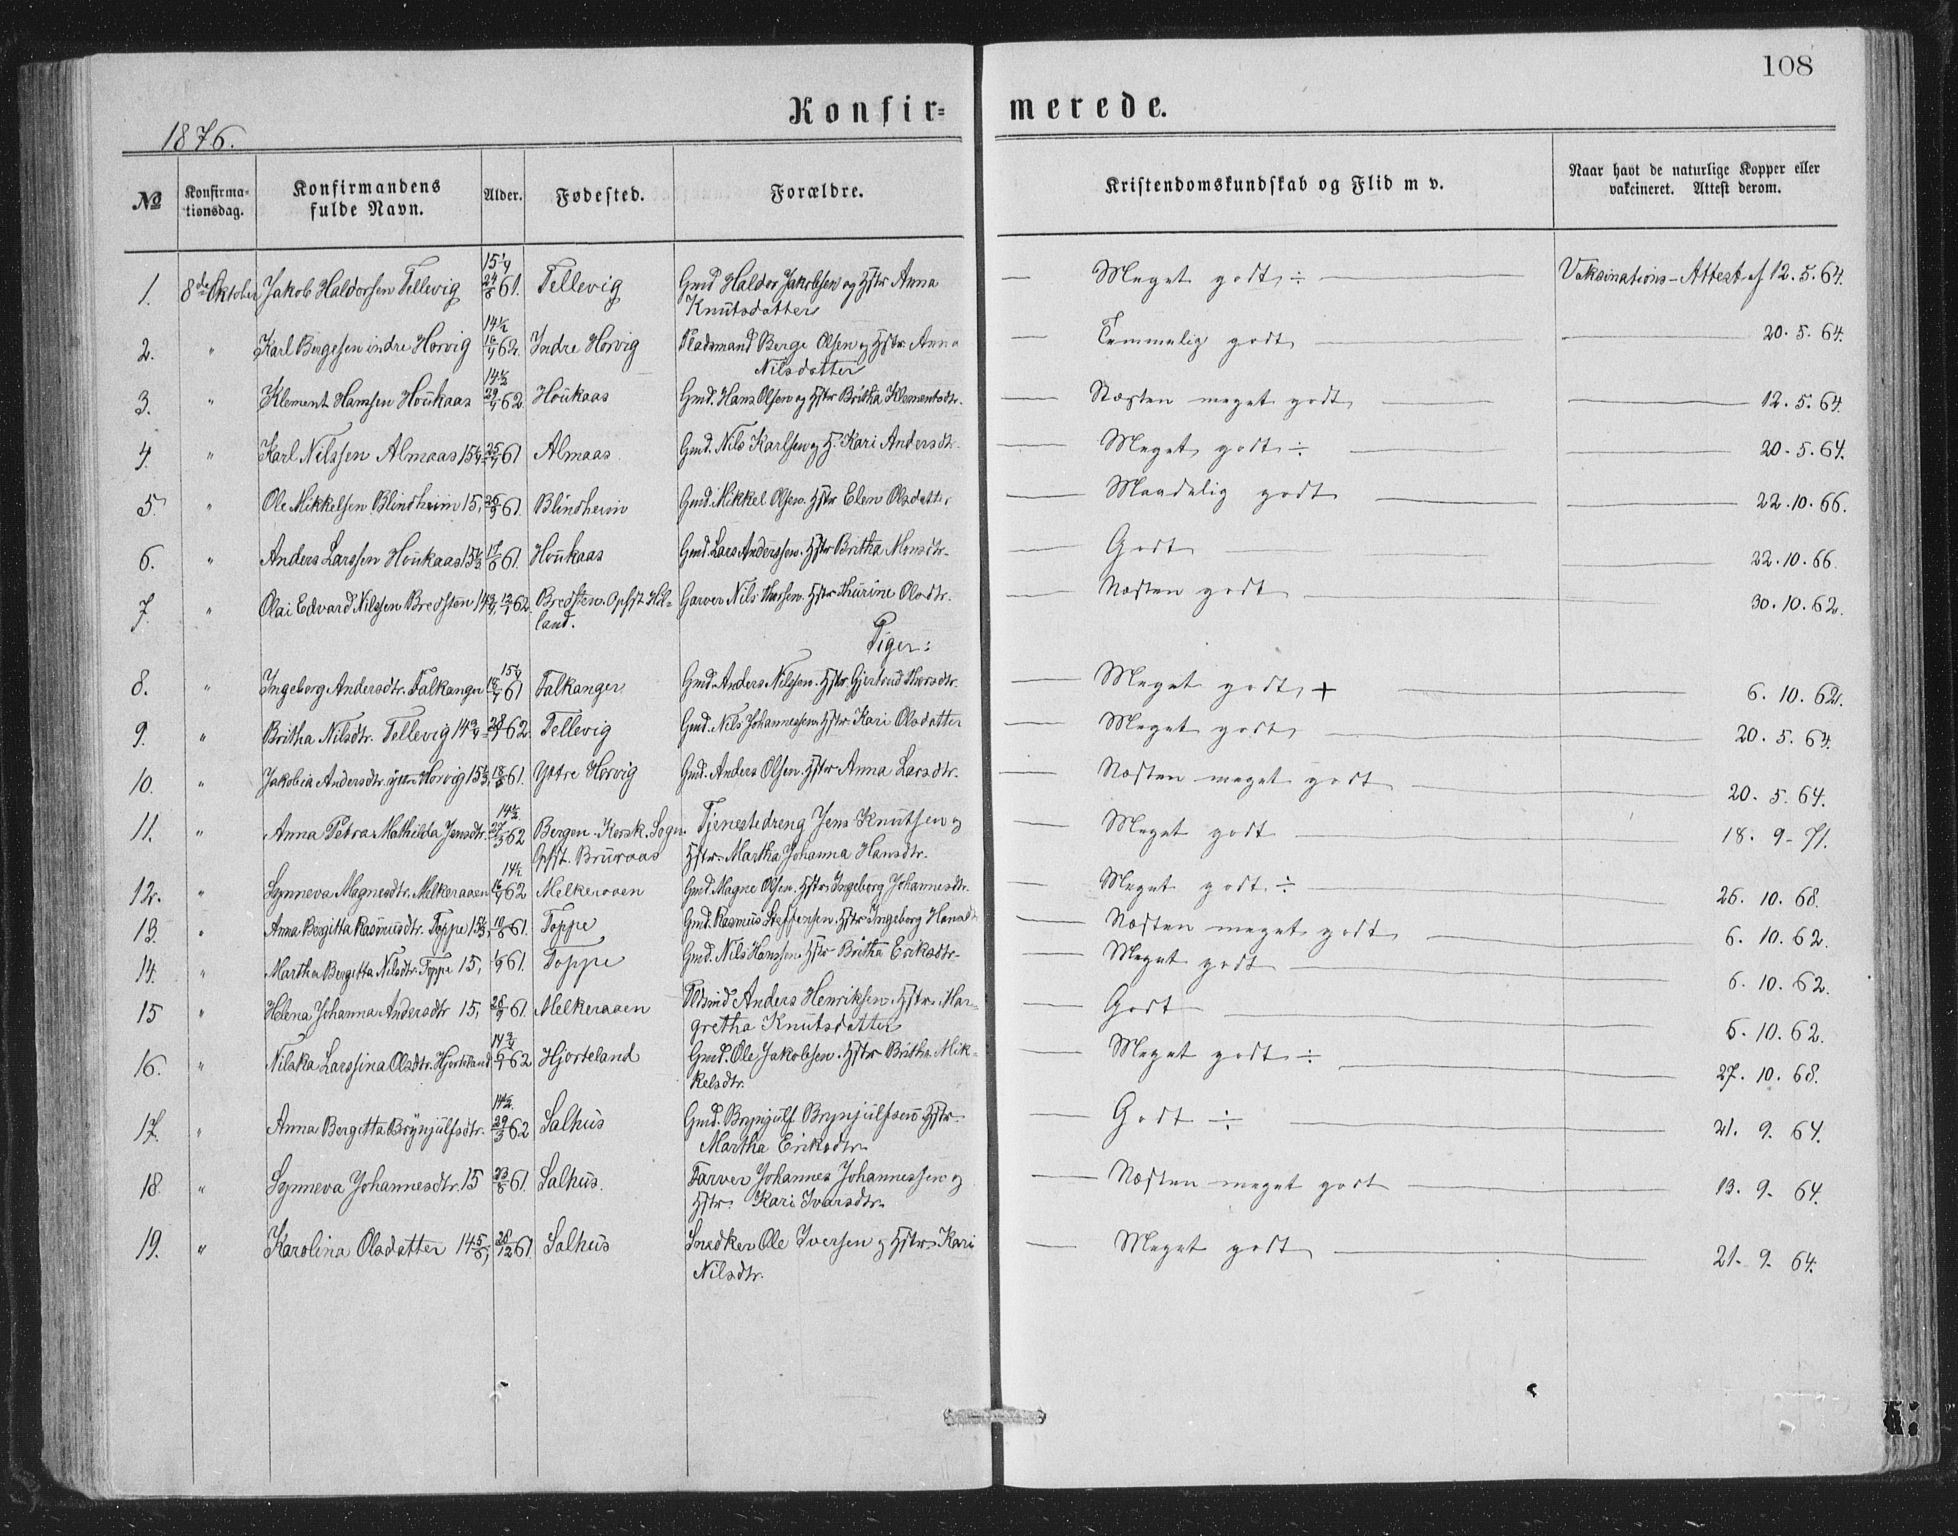 108
Konfirmerede.
1876.
№ Konfirmationsdag. Konfirmandens fulde Navn. Alder. Fødested. Forældre. Kristendomskundskab og Flid m v. Naar havt de naturlige Kopper eller vakcineret. Attest derom.
1. 8de Oktober Jakob Haldorsen Tellevig 15 1/4 24/6 61. Tellevig Gmd Haldor Jakobsen og Hstr Anna Knutsdatter — Meget godt ÷ — Vaksinations-Attest af 12. 5. 64.
2. " Karl Bergesen indre Horvig 14 1/2 16/4 62. Indre Horvig Pladsmand Berge Olsen og Hstr Anna Nilsdatter — Temmelig godt — 20. 5. 64.
3. " Klement Hansen Houkaas 14 1/2 29/4 62 Houkaas Gmd. Hans Olsen og Hstr Britha Klementsdtr. — Næsten meget godt — 12. 5. 64.
4. " Karl Nilssen Almaas 15 1/4 61 Almaas Gmd. Nils Karlsen og H. Kari Andersdtr. — Meget godt ÷ — 20. 5. 64.
5. " Ole Mikkelsen Blindheim 15, 26/9 61. Blindheim Gmd. Mikkel Olsen. Hstr Elen Olsdatter — Maadelig godt — 22. 10. 66.
6. " Anders Larssen Houkaas 15 1/3 17/6 61. Houkaas Gmd. Lars Anderssen. Hstr Britha Monsdtr. — Godt — 22. 10. 66.
7. " Olai Edvard Nilssen Bredsten 14 3/4, 62. Bredsten. Opfst. Helland. Garver Nils Hstr Thurine Olsdtr. — Næsten godt — 30. 10. 62.
Piger:
8. " Ingeborg Andersdtr. Falkanger 15 1/4 61 Falkanger Gmd. Anders Nilssen. Hstr. Gjertrud Thorsdtr. — Meget godt + — 6. 10. 62.
9. " Britha Nilsdtr. Tellevig 14 3/4 62. Tellevig Gmd. Nils Johannessen. Hstr. Kari Olsdatter — Meget godt — 20. 5. 64.
10. " Jakobia Andersdtr. ytre Horvig 15 1/3, 18/6 61. Ytre Horvig Gmd. Anders Olsen. Hstr Anna Larsdtr. — Næsten meget godt — 20. 5. 64.
11. " Anna Petra Mathilda Jensdtr. 14 1/2 27/3 62 Bergen. Korsk. Sogn Opfst. Bruraas Tjenestedreng Jens Knutsen og Hstr. Martha Johanna Hansdtr. — Meget godt — 18. 9. 71.
12. " Synneva Magnesdtr. Melkeraaen 14 1/2 16/4 62 Melkeraaen Gmd. Magne Olsen. Hstr. Ingeborg Johannesdtr. — Meget godt ÷ — 26. 10. 68.
13. " Anna Bergitta Rasmusdtr. Toppe 15 1/3, 10/6 61. Toppe Gmd. Rasmus Steffensen. Hstr Ingeborg Hansdtr — Næsten meget godt — 6. 10. 62.
14. " Martha Bergetta Nilsdtr. Toppe 15, 1/9 61. Toppe Gmd. Nils Hanssen. Hstr Britha Eriksdtr. — Meget godt — 6. 10. 62.
15 " Helena Johanna Andersdtr 15, 28/9 61. Melkeraaen Anders Henriksen. Hstr. Margretha Knutsdatter — Godt — 6. 10. 62.
16. " Nilska Larssina Olsdtr. Hjorteland 14 3/4 62 Hjorteland Gmd. Ole Jakobsen. Hstr Britha Mikkelsdtr. — Meget godt ÷ — 27. 10. 68.
17. " Anna Bergitta Brynjulfsdtr. 14 1/2. 29/3 62 Salhus Gmd. Brynjulf Brynjulfsen Hstr. Martha Eriksdtr. — Godt ÷ — 21. 9. 64.
18 " Synneva Johannesdtr. 15 23/8 61. Salhus. Farver Johannes Johannessen og Hstr. Kari Ivarsdtr. — Næsten meget godt — 13. 9. 64.
19. " Karolina Olsdatter 14 5/6, 28/12 61. Salhus Snedker Ole Iversen og Hstr. Kari Nilsdtr. — Meget godt — 21. 9. 64.